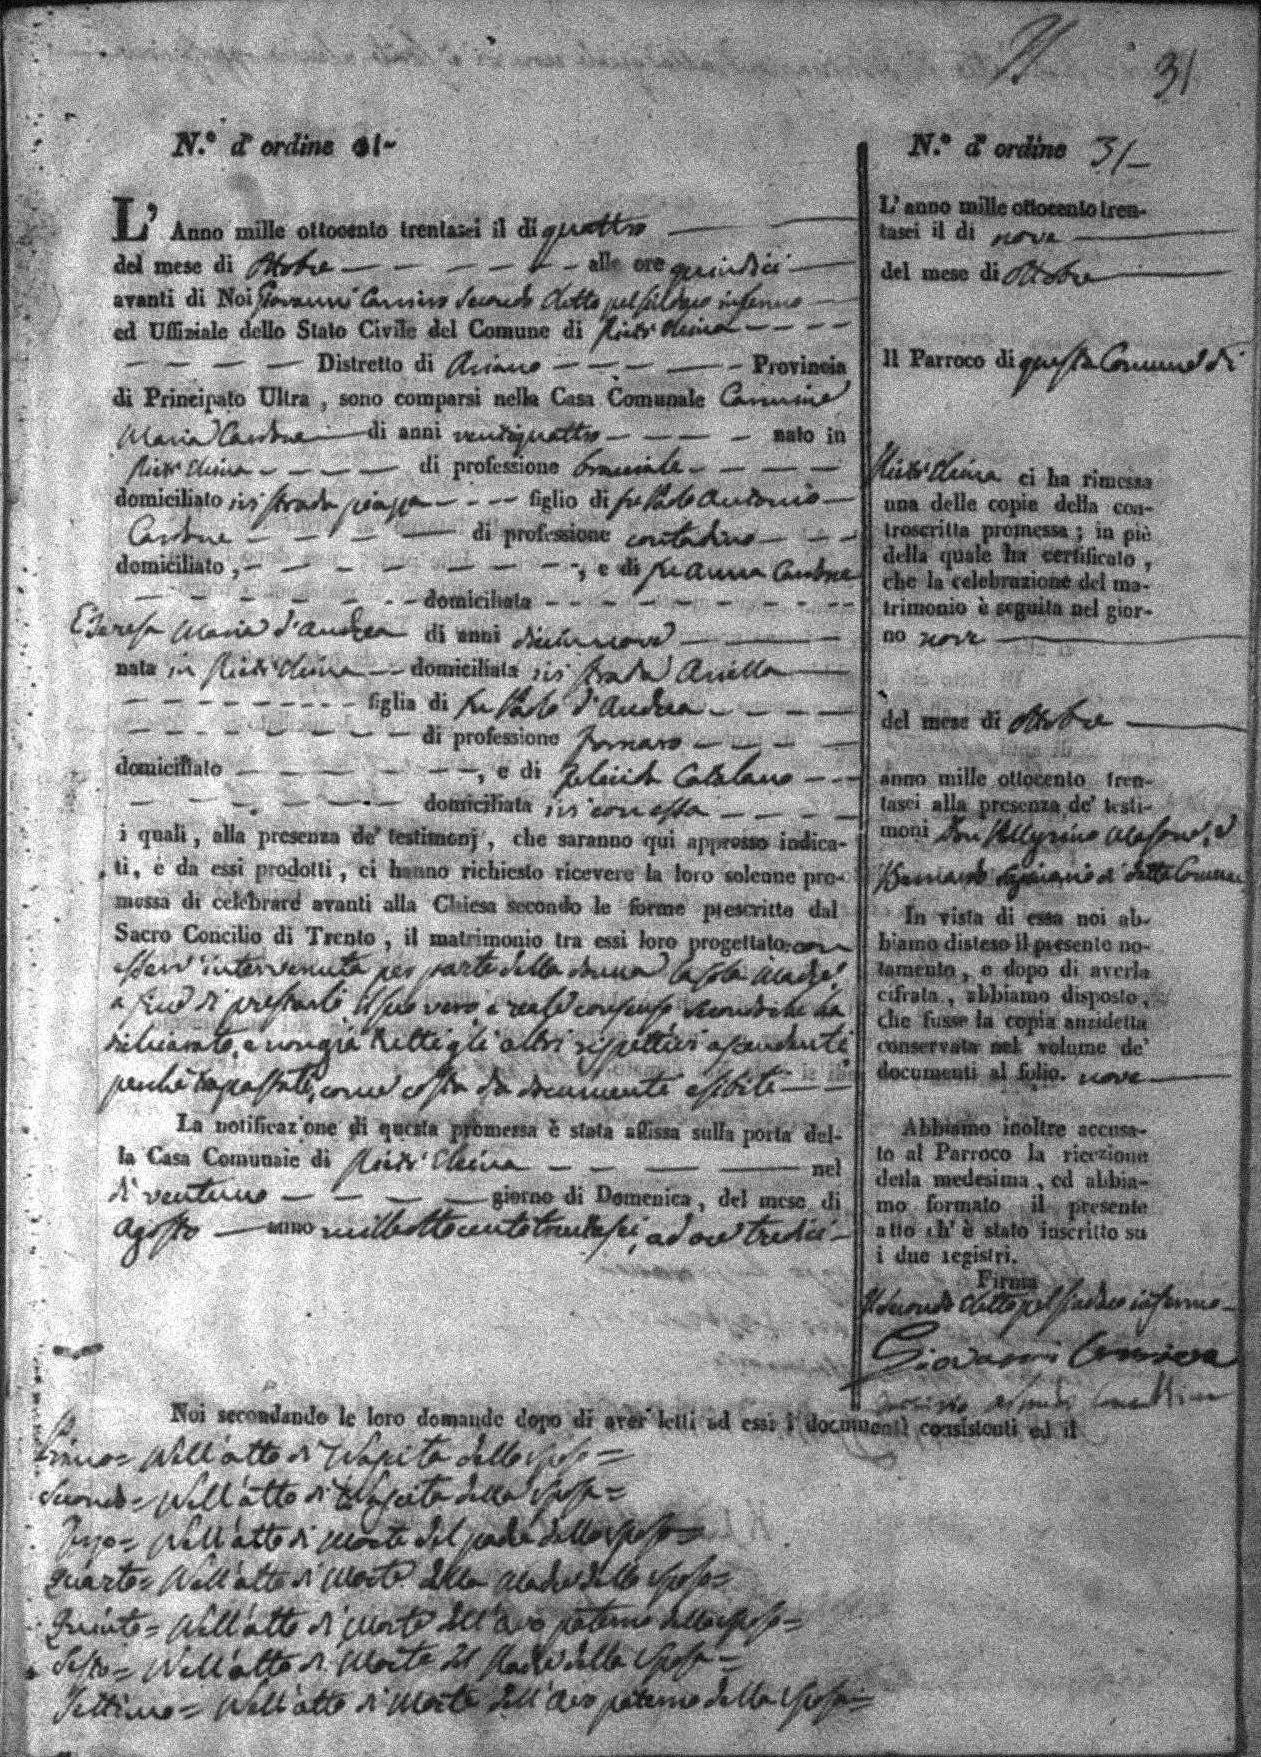 31
N.° d' ordine 31-
L' Anno mille ottocento trentasei il dì quattro
del mese di Ottobre alle ore quindici
avanti di Noi Giovanni Secondo eletto pel Sindaco infermo
ed Uffiziale dello Stato Civile del Comune di Pietr'elcina
Distretto di Ariano Provincia
di Principato Ultra, sono comparsi nella Casa Comunale Carmine
Maria Cardone di anni ventiquattro nato in
Pietr'elcina di professione bracciale
domiciliato ivi strada piazza figlio di fu Paolo Antonio
Cardone di professione contadino
domiciliato, , e di fu Anna Cardone
domiciliata
E Teresa Maria d'Andrea di anni diecinnove
nata in Pietr'elcina domiciliata ivi strada Aniella
figlia di fu Paolo d'Andrea
di professione fornaro
domiciliato , e di Felicia Catalano
domiciliata ivi con essa
i quali, alla presenza de' testimonj, che saranno qui appresso indica-
ti, e da essi prodotti, ci hanno richiesto ricevere la loro solenne pro-
messa di celebrare avanti alla Chiesa secondo le forme prescritte dal
Sacro Concilio di Trento, il matrimonio tra essi loro progettato: con
esservi intervenuta per parte della donna la sola Madre
a fine di prestarle il suo vero, e reale consenso secondoché ha
dichiarato, e non già tutti gli altri rispettivi ascendenti
perché trapassati, come costa da documenti esibiti
La notificazione di questa promessa è stata affissa sulla porta del-
la Casa Comunale di Pietr'elcina nel
dì ventuno giorno di Domenica, del mese di
Agosto anno milleottocentotrentasei, ad ore tredici
N.° d' ordine 31-
L' anno mille ottocento tren-
tasei il dì nove
del mese di Ottobre
Il Parroco di questa Comune di
Pietr'elcina ci ha rimessa
una delle copie della con-
troscritta promessa; in piè
della quale ha certificato,
che la celebrazione del ma-
trimonio è seguita nel gior-
no nove
del mese di Ottobre
anno mille ottocento tren-
tasei alla presenza de' testi-
moni Don Pellegrino Masone, e
Bernardo di detta Comune
In vista di essa noi ab-
biamo disteso il presente no-
tamento, e dopo di averla
cifrata, abbiamo disposto,
che fusse la copia anzidetta
conservata nel volume de'
documenti al folio. nove
Abbiamo inoltre accusa-
to al Parroco la ricezione
della medesima, ed abbia-
mo formato il presente
atto ch' è stato inscritto su
i due registri.
Firma
Il Secondo eletto pel Sindaco infermo
Giovanni
Noi secondando le loro domande dopo di aver letti ad essi i documenti consistenti ed il
Primo = Nell'atto di Nascita dello sposo =
Secondo = Nell'atto di Nascita della sposa =
Terzo = Nell'atto di Morte del padre dello sposo =
Quarto = Nell'atto di Morte della Madre dello sposo =
Quinto = Nell'atto di Morte dell'Avo paterno dello sposo =
Sesto = Nell'atto di Morte del Padre della Sposa =
Settimo = Nell'atto di Morte dell'Avo paterno della Sposa =